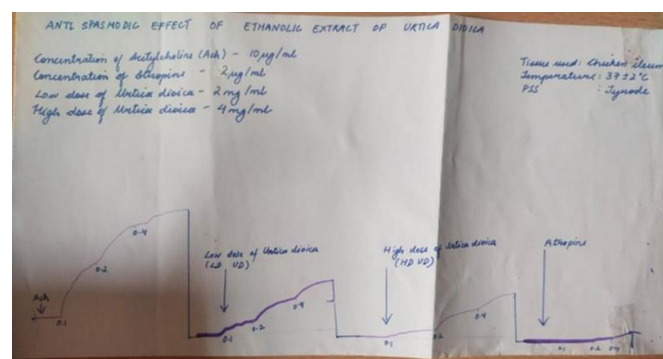 ANTI SPASMODIC EFFECT OF ETHANOLIC EXTRACT OF URTICA DIOICA
Concentration of Acetylcholine (Ach) - 10 µg/ml
Concentration of Atropine - 2 µg/ml
Low dose of Urtica dioica - 2 mg/ml
High dose of Urtica dioica - 4 mg/ml
Tissue used: Chicken ileum
Temperature: 37±2°C
PSS : Tyrode
Ach
0.1
0.2
0.4
Low dose of Urtica dioica
(LD UD)
0.1
0.2
0.4
High dose of Urtica dioica
(HD UD)
0.1
0.2
0.4
Athopine
0.1
0.2
0.4